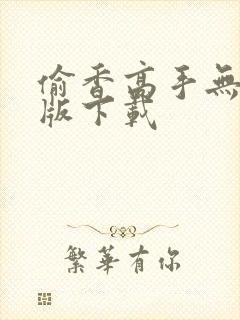 偷香高手無
版下載
繁華有你